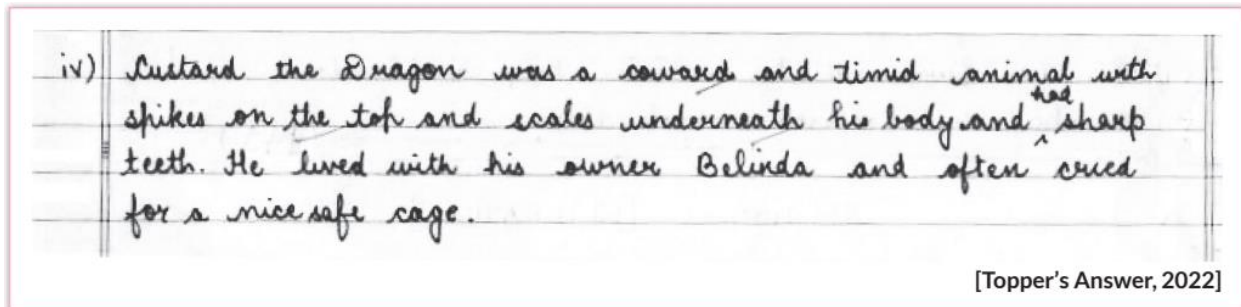 iv) Custard the Dragon was a coward and timid animal with
spikes on the top and scales underneath his body and had sharp
teeth. He lived with his owner Belinda and often cried
for a nice safe cage.
[Topper's Answer, 2022]